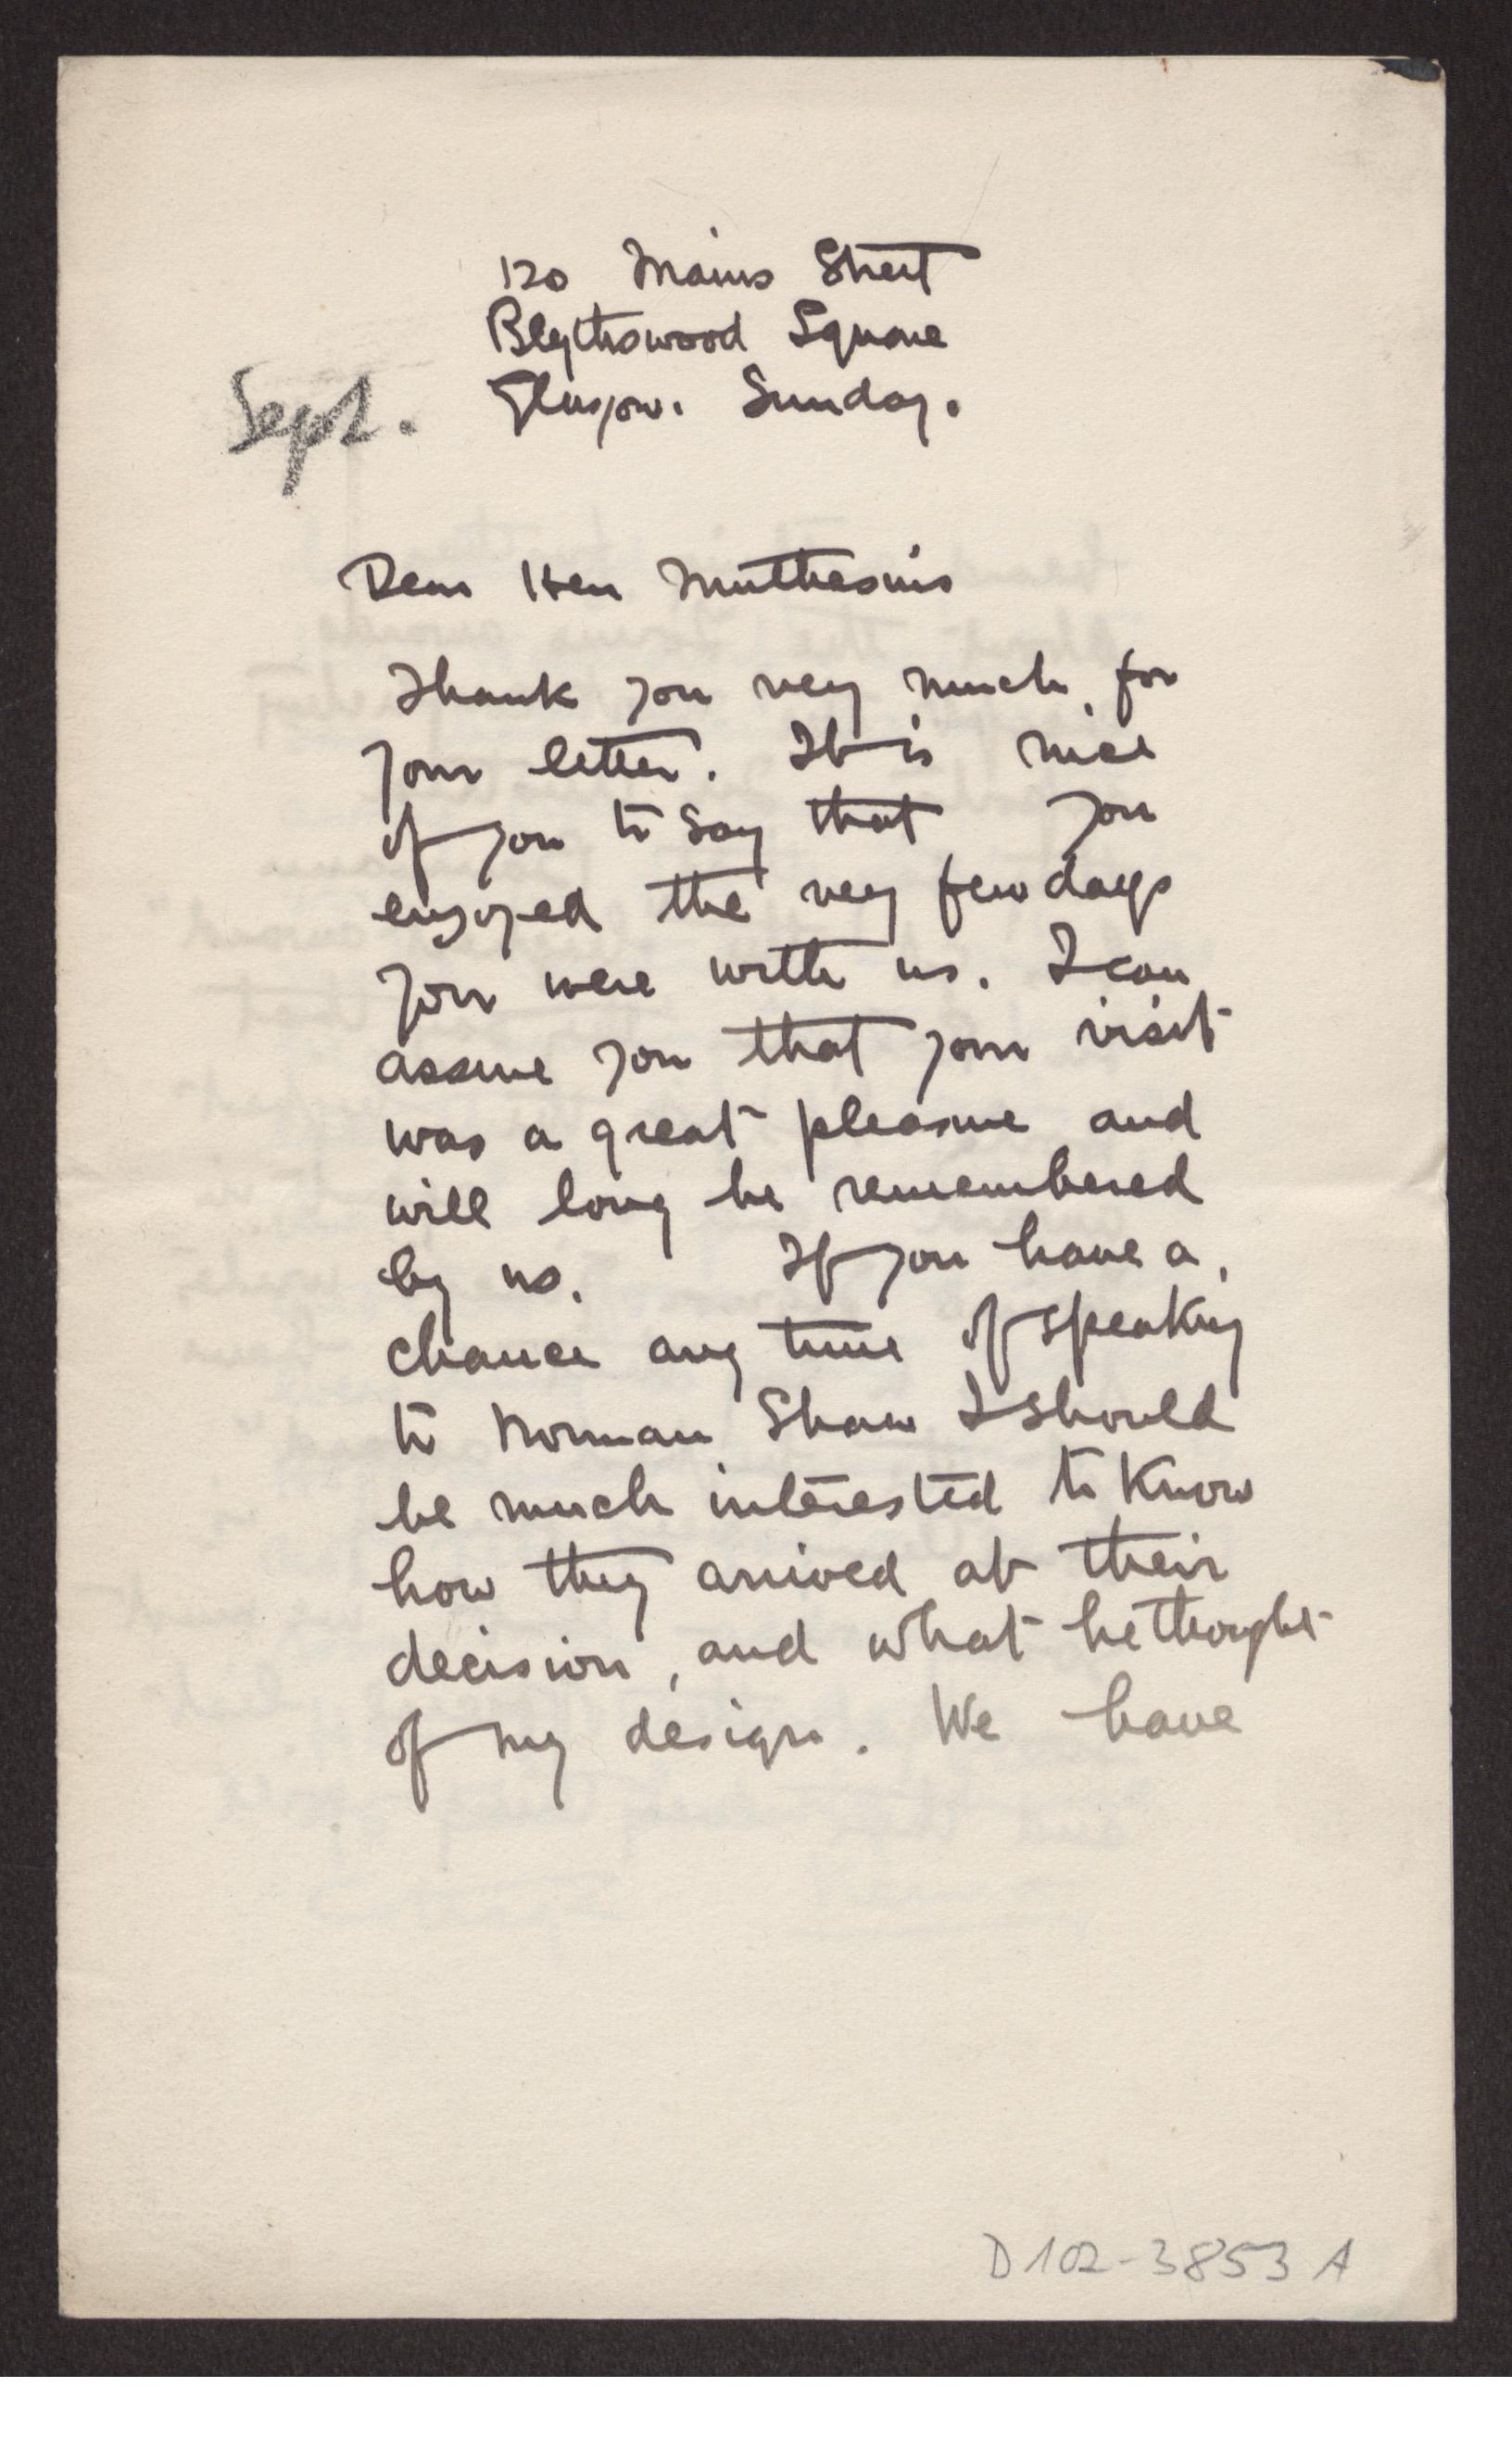 120 Mains Street
Blythswood Square
Sept. Glasgow. Sunday.
Dear Herr Muthesius
Thank you very much for
your letter. It is nice
of you to say that you
enjoyed the very few days
you were with us. I can
assure you that your visit
was a great pleasure and
will long be remembered
by us. If you have a
chance any time of speaking
to Norman Shaw I should
be much interested to know
how they arrived at their
decision, and what he thought
of my design. We have
D 102-3853 A